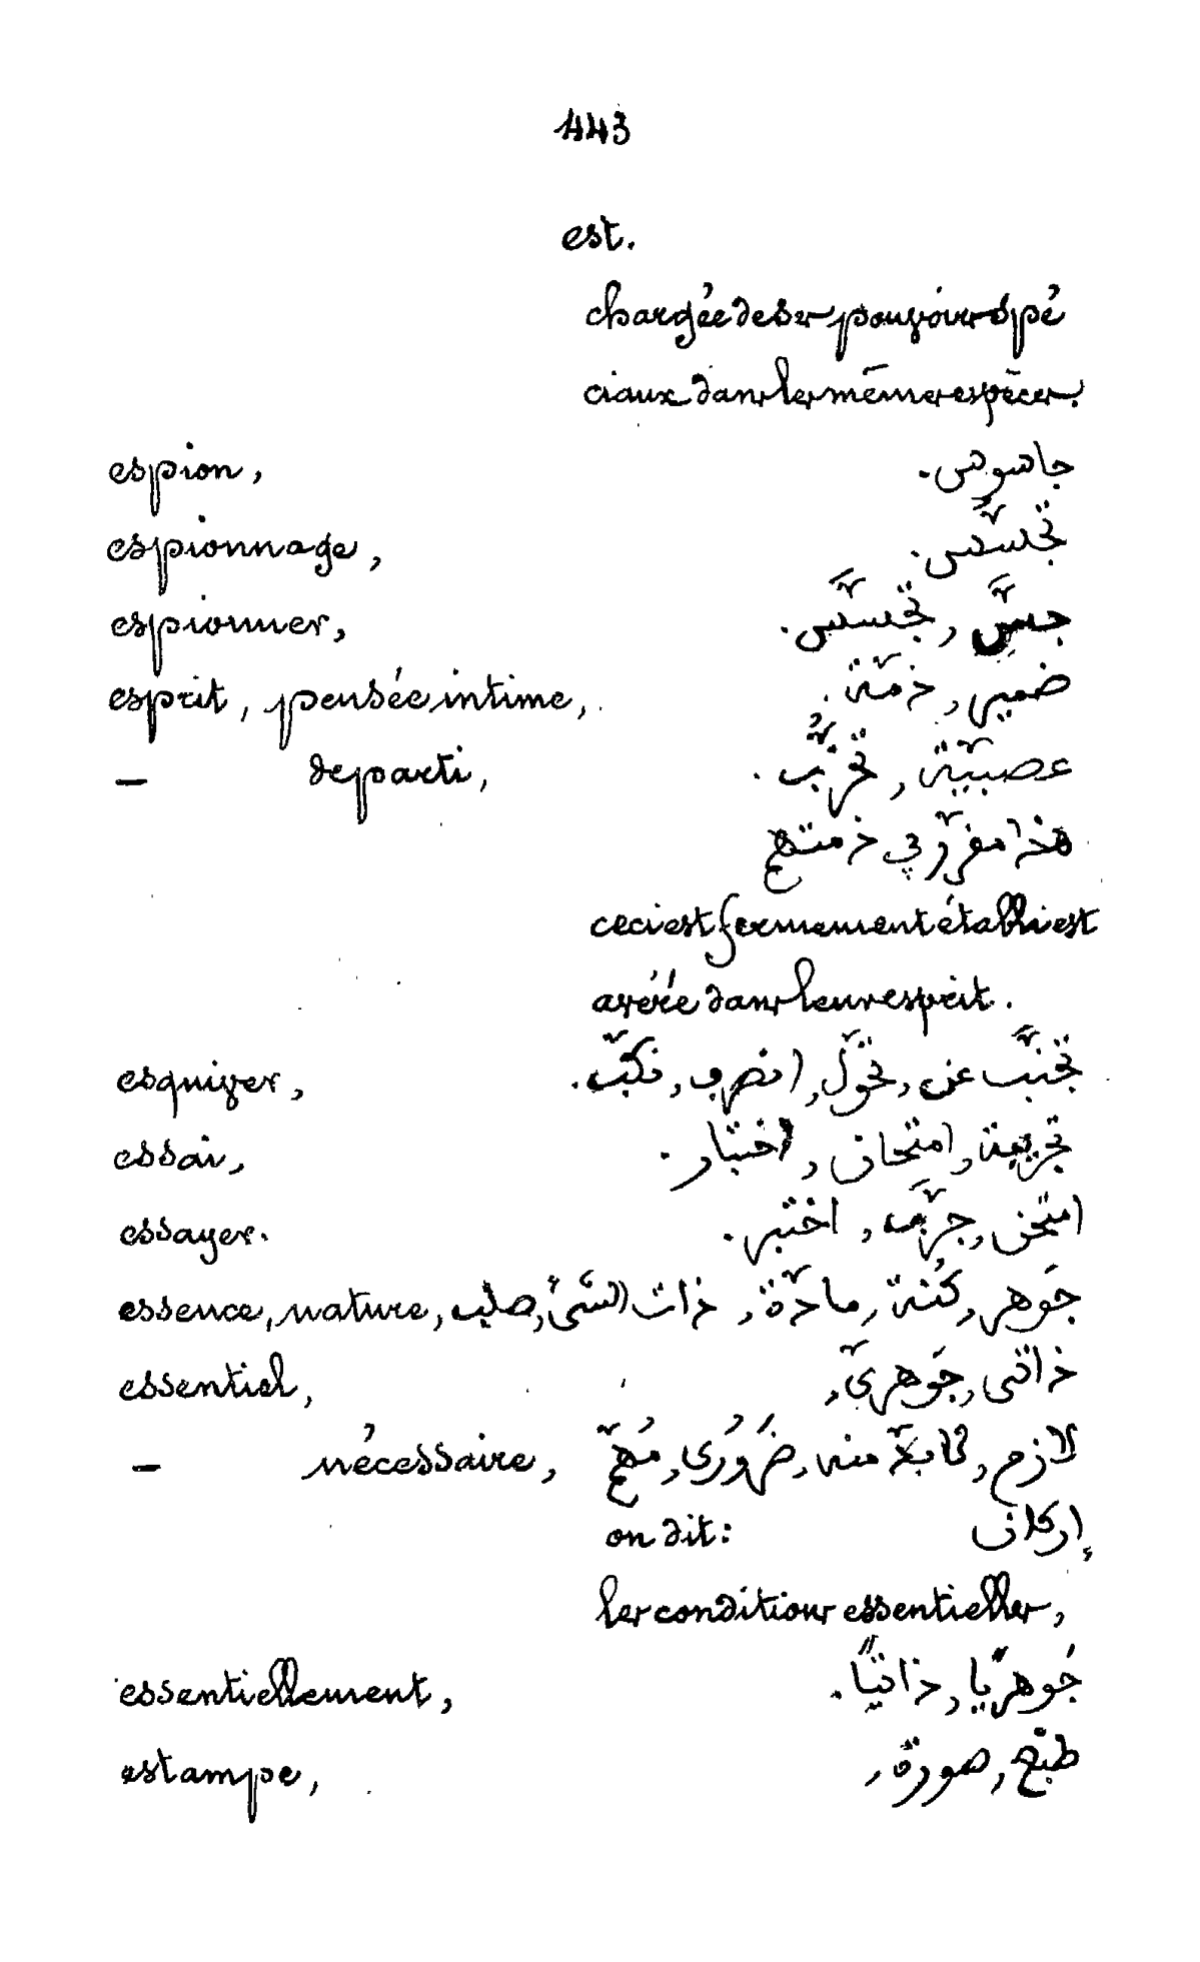 443
est.
chargée de ses pouvoirs spé
ciaux dans les mêmes espèces.
espion, جاسوس.
espionnage, تجسّس.
espionner, جسّ, تجسّس.
esprit, pensée intime, ضمير, ذمّة.
— de parti, عصبيّة, تحزّب.
هذا مقرّر في ذمتهم
ceci est fermement établi est
avéré dans leur esprit.
esquiver, تجنّب عن, تحوّل, انصرف, نكّب.
essai, تجربة, امتحان, اختبار.
essayer. امتحن, جرّب, اختبر.
essence, nature, جَوهر, كُنه, مادّة, ذات الشَّئ, صلب
essentiel, ذاتى, جَوهرىّ,
— nécessaire, لازم, لا بدّ منه, ضَرُورى, مُهمّ
on dit: إركان
les conditions essentielles,
essentiellement, جَوهريًّا, ذاتيًّا.
estampe, طبع, صورة,